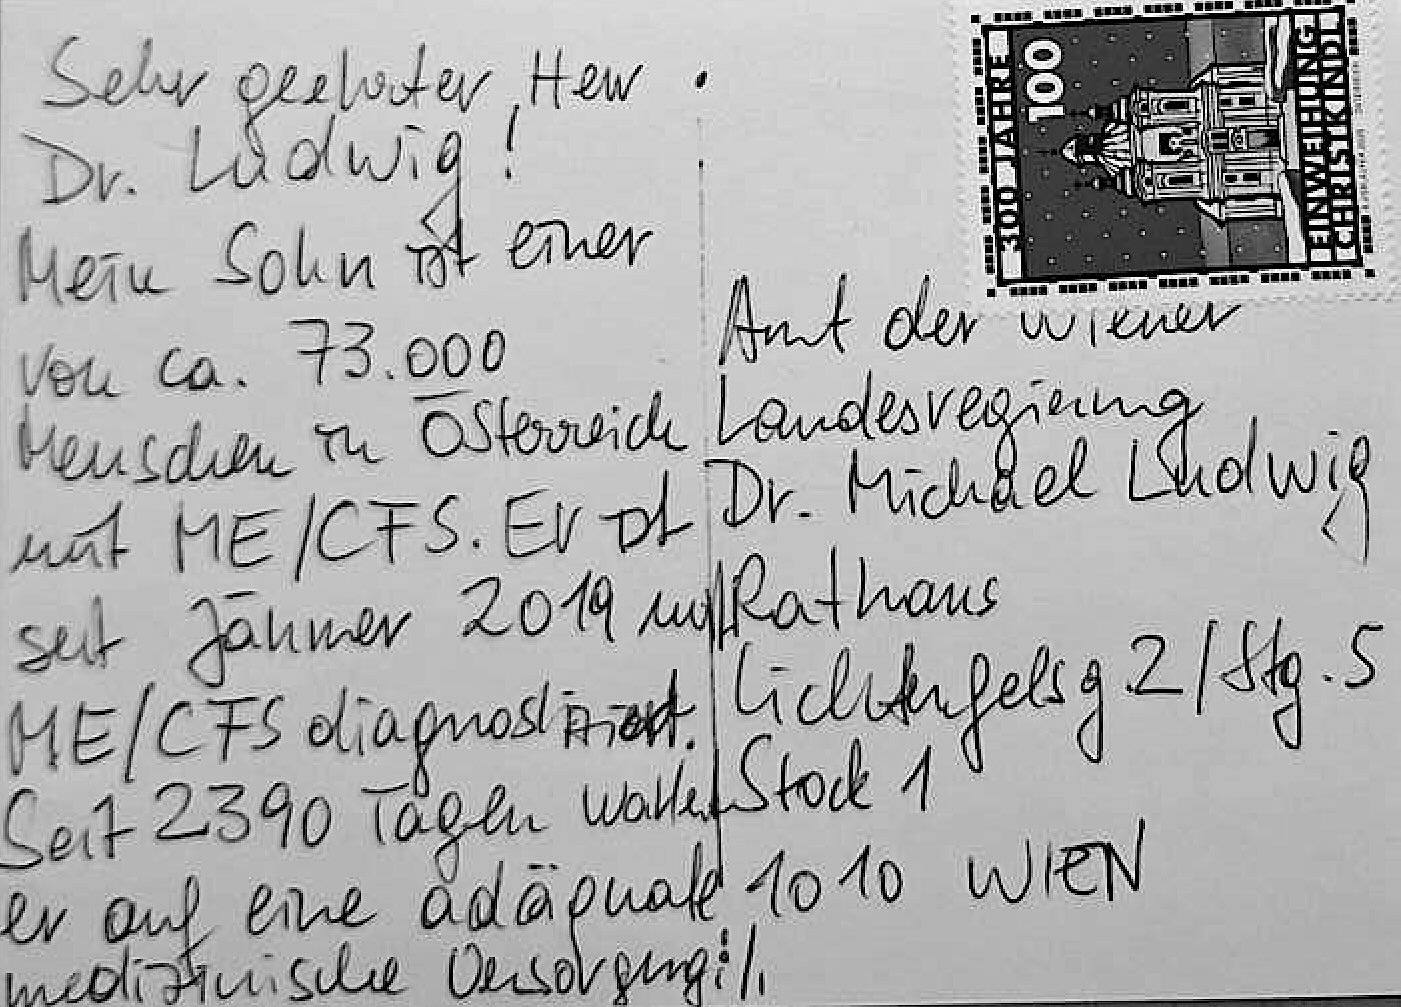 Sehr geehrter Herr
Dr. Ludwig!
Mein Sohn ist einer
von ca. 73.000
Menschen in Österreich
mit ME/CFS. Er ist
seit Jänner 2019 mit
ME/CFS diagnostiziert.
Seit 2390 Tagen wartet
er auf eine adäquate
medizinische Versorgung!
300 JAHRE
100
EINWEIHUNG
CHRISTKINDL
Amt der Wiener
Landesregierung
Dr. Michael Ludwig
Rathaus
Lichtenfelsg.2/Stg.5
Stock 1
1010 WIEN